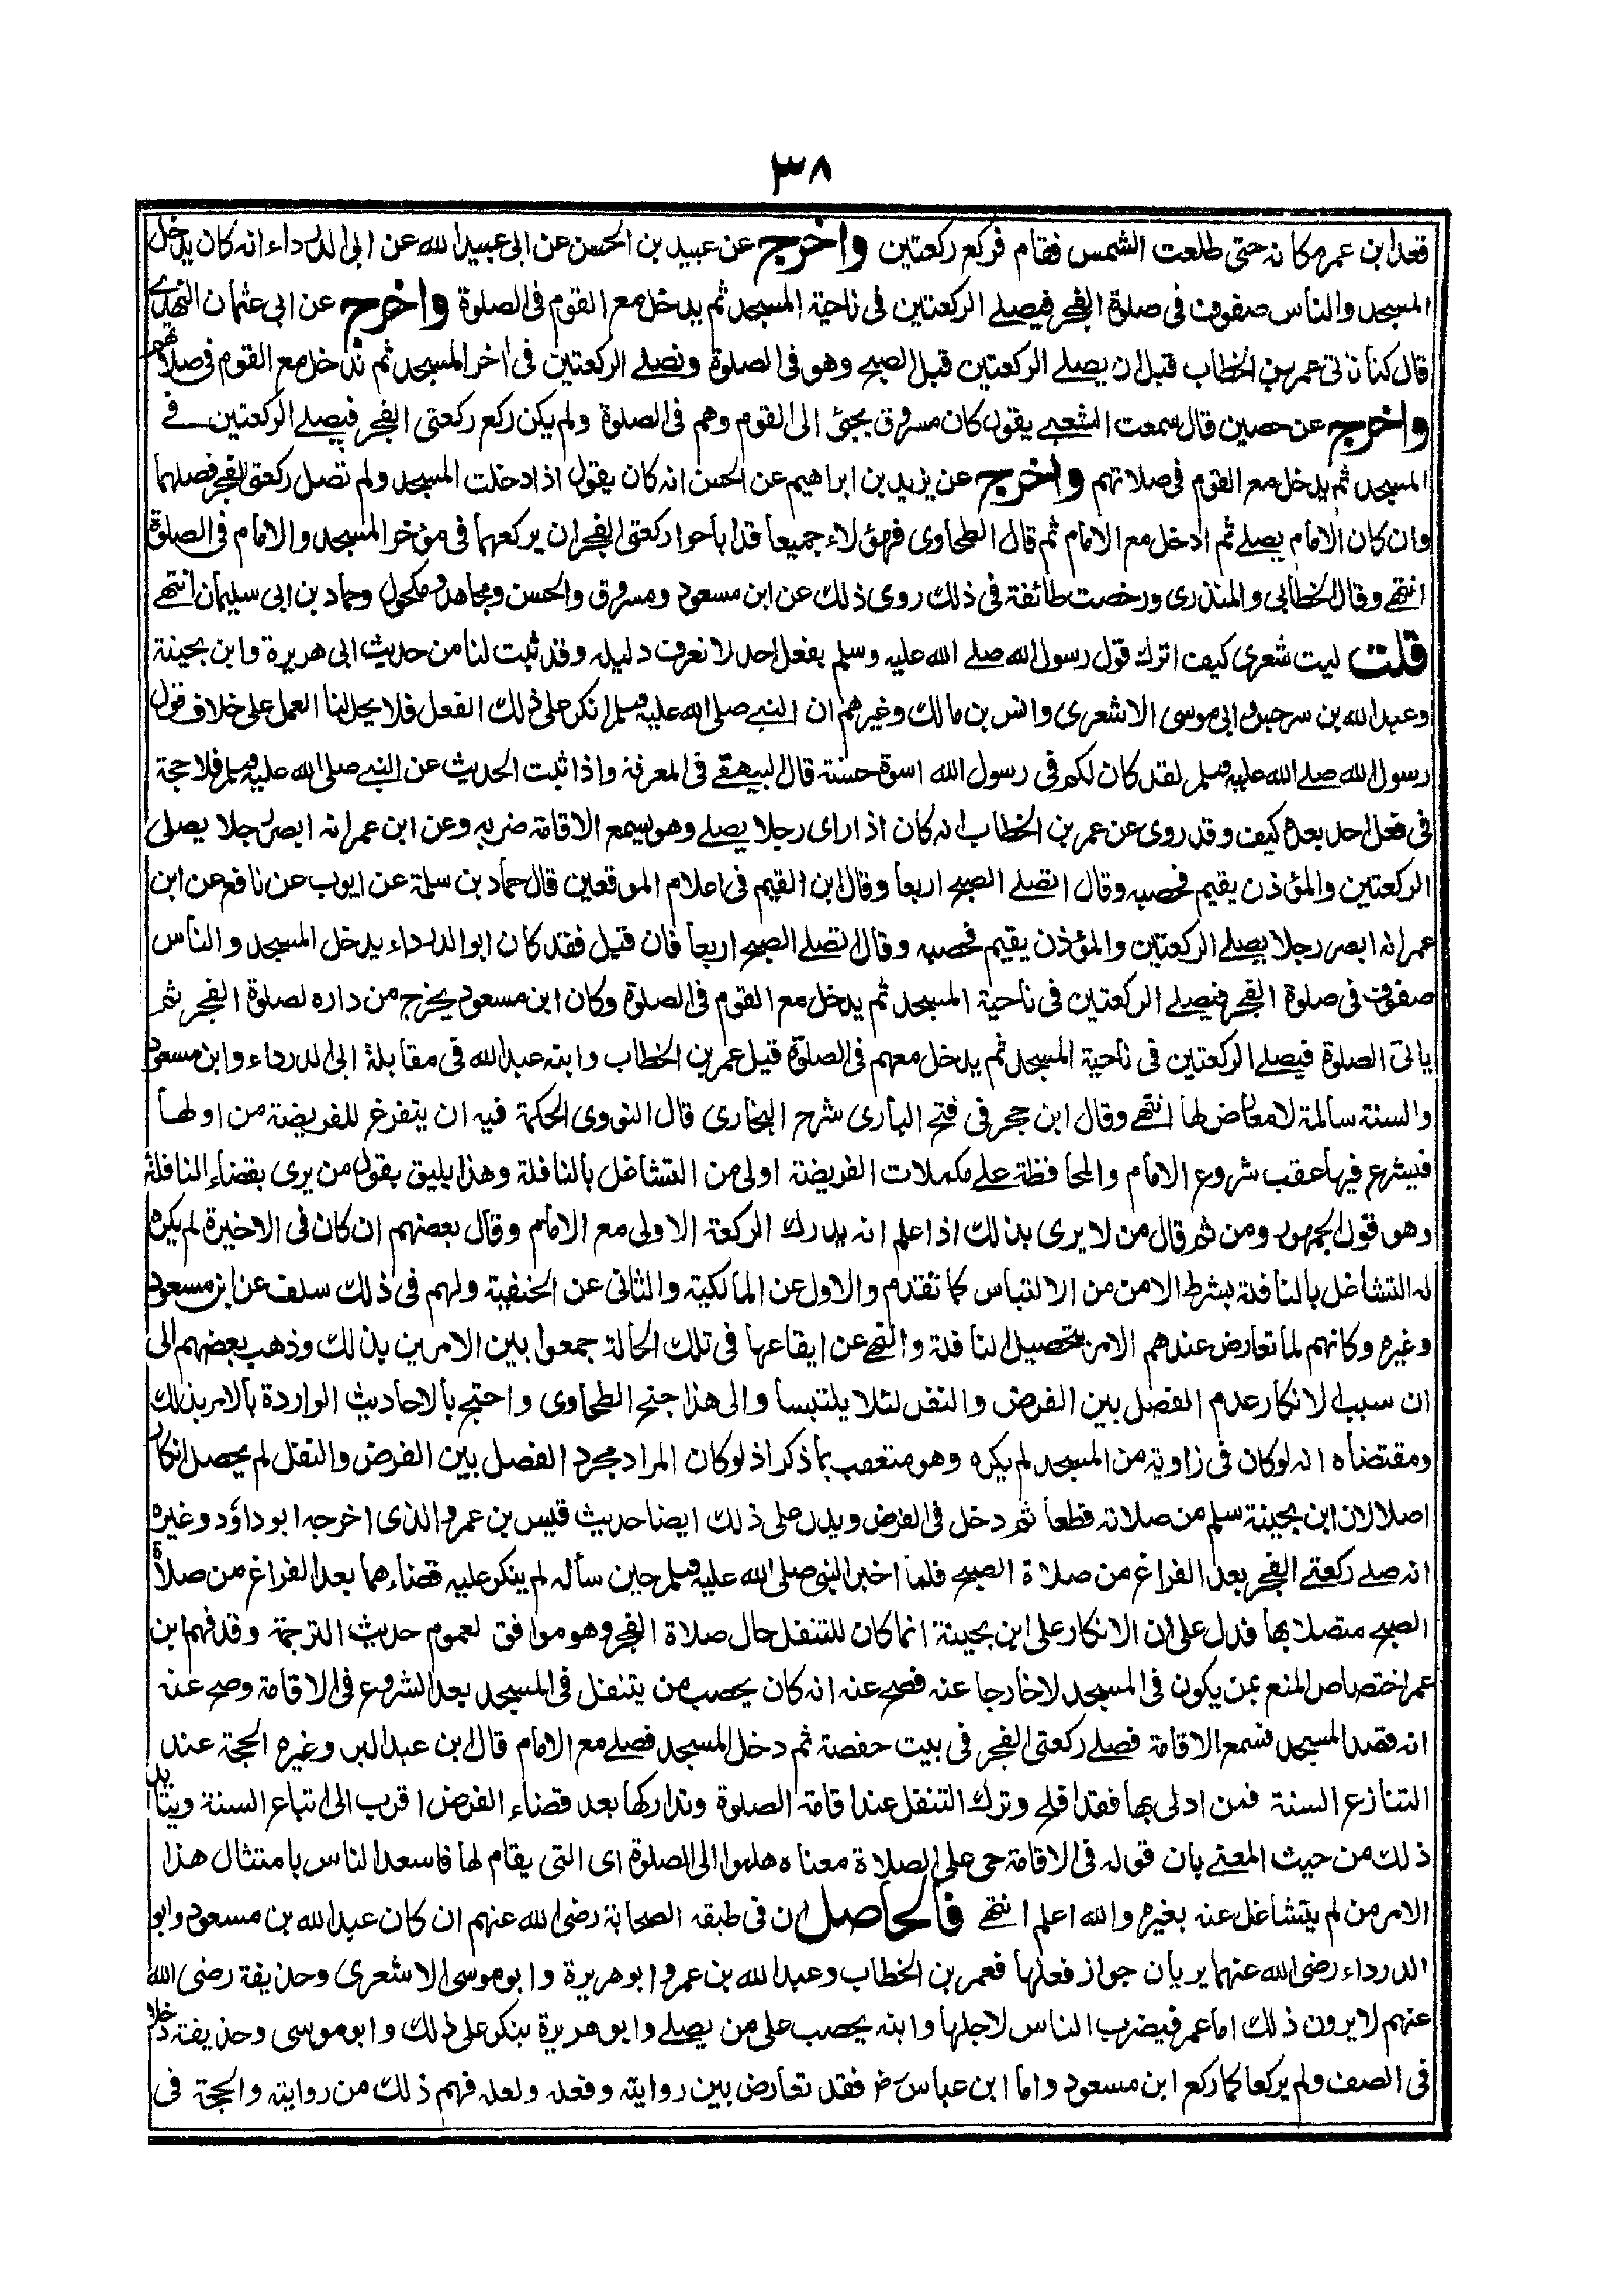 ٣٨
قعد ابن عمر مكانه حتى طلعت الشمس فقام فركع ركعتين واخرج عن عبيد بن الحسن عن ابي عبيد الله عن ابي الدرداء انه كان يدخل
المسجد والناس صفوف فى صلوة الفجر فيصلے الركعتين فى ناحية المسجد ثم يدخل مع القوم فى الصلوة واخرج عن ابى عثمان النهدے
قال كنا ناتى عمر بن الخطاب قبل ان يصلے الركعتين قبل الصبح وهو فى الصلوة ونصلے الركعتين فى اخر المسجد ثم ندخل مع القوم فى صلاتهم
واخرج عن حصين قال سمعت الشعبے يقول كان مسروق يجئى الى القوم وهم فى الصلوة ولم يكن ركع ركعتى الفجر فيصلے الركعتين فے
المسجد ثم يدخل مع القوم فى صلاتهم واخرج عن يزيد بن ابراهيم عن الحسن انه كان يقول اذا دخلت المسجد ولم تصل ركعتى الفجر فصلهما
وان كان الامام يصلے ثم ادخل مع الامام ثم قال الطحاوى فهؤلاء جميعا قد اباحوا ركعتى الفجر ان يركعهما فى مؤخر المسجد والامام فى الصلوة
انتهے وقال الخطابى والمنذرى ورخصت طائفة فى ذلك روى ذلك عن ابن مسعود ومسروق والحسن ومجاهد ومكحول وحماد بن ابى سليمان انتهے
قلت ليت شعرى كيف اترك قول رسول الله صلے الله عليه وسلم بفعل احد لا نعرف دليله وقد ثبت لنا من حديث ابى هريرة وابن بحينة
وعبد الله بن سرجس وابى موسى الاشعرى وانس بن مالك وغيرهم ان النبے صلى الله عليه وسلم انكر على ذلك الفعل فلا يحل لنا العمل على خلاف قول
رسول الله صلے الله عليه وسلم لقد كان لكم فى رسول الله اسوة حسنة قال البيهقے فى المعرفة واذا ثبت الحديث عن النبے صلى الله عليه وسلم فلا حجة
فى فعل احد بعده كيف وقد روى عن عمر بن الخطاب انه كان اذا راى رجلا يصلے وهو يسمع الاقامة ضربه وعن ابن عمر انه ابصر رجلا يصلى
الركعتين والمؤذن يقيم فحصبه وقال اتصلے الصبح اربعا وقال ابن القيم فى اعلام الموقعين قال حماد بن سلمة عن ايوب عن نافع عن ابن
عمر انه ابصر رجلا يصلے الركعتين والمؤذن يقيم فحصبه وقال اتصلے الصبح اربعا فان قيل فقد كان ابو الدرداء يدخل المسجد والناس
صفوف فى صلوة الفجر فيصلے الركعتين فى ناحية المسجد ثم يدخل مع القوم فى الصلوة وكان ابن مسعود يخرج من داره لصلوة الفجر ثم
ياتى الصلوة فيصلے الركعتين فى ناحية المسجد ثم يدخل معهم فى الصلوة قيل عمر بن الخطاب وابنه عبد الله فى مقابلة ابى الدرداء وابن مسعود
والسنة سالمة لا معارض لها انتهے وقال ابن حجر فى فتح البارى شرح البخارى قال النووى الحكمة فيه ان يتفرغ للفريضة من اولها
فيشرع فيها عقب شروع الامام والمحافظة علے مكملات الفريضة اولى من التشاغل بالنافلة وهذا يليق بقول من يرى بقضاء النافلة
وهو قول الجمهور ومن ثم قال من لا يرى بذلك اذا علم انه يدرك الركعة الاولى مع الامام وقال بعضهم ان كان فى الاخيرة لم يكره
له التشاغل بالنافلة بشرط الامن من الالتباس كما تقدم والاول عن المالكية والثانى عن الحنفية ولهم فى ذلك سلف عن ابن مسعود
وغيره وكانهم لما تعارض عندهم الامر بتحصيل النافلة والنهے عن ايقاعها فى تلك الحالة جمعوا بين الامرين بذلك وذهب بعضهم الى
ان سبب الانكار عدم الفصل بين الفرض والنفل لئلا يلتبسا والى هذا جنح الطحاوى واحتج بالاحاديث الواردة بالامر بذلك
ومقتضاه انه لو كان فى زاوية من المسجد لم يكره وهو متعقب بما ذكر اذ لو كان المراد مجرد الفصل بين الفرض والنفل لم يحصل انكار
اصلا لان ابن بحينة سلم من صلاته قطعا ثم دخل فى الفرض ويدل على ذلك ايضا حديث قيس بن عمرو الذى اخرجه ابو داؤد وغيره
انه صلے ركعتے الفجر بعد الفراغ من صلاة الصبح فلما اخبر النبى صلى الله عليه وسلم حين سأله لم ينكر عليه قضاءهما بعد الفراغ من صلاة
الصبح متصلا بها فدل على ان الانكار على ابن بحينة انما كان للتنفل حال صلاة الفجر وهو موافق لعموم حديث الترجمة وقد فهم ابن
عمر اختصاص المنع بمن يكون فى المسجد لا خارجا عنه فصح عنه انه كان يحصب من يتنفل فى المسجد بعد الشروع فى الاقامة وصح عنه
انه قصد المسجد فسمع الاقامة فصلے ركعتى الفجر فى بيت حفصة ثم دخل المسجد فصلے مع الامام قال ابن عبد البر وغيره الحجة عند
التنازع السنة فمن ادلى بها فقد افلح وترك التنفل عند اقامة الصلوة وتداركها بعد قضاء الفرض اقرب الى اتباع السنة ويتأيد
ذلك من حيث المعنے بان قوله فى الاقامة حى على الصلاة معناه هلموا الى الصلوة اى التى يقام لها فاسعد الناس بامتثال هذا
الامر من لم يتشاغل عنه بغيره والله اعلم انتهے فالحاصل ان فى طبقه الصحابة رضى الله عنهم ان كان عبد الله بن مسعود وابو
الدرداء رضى الله عنهما يريان جواز فعلها فعمر بن الخطاب وعبد الله بن عمر وابو هريرة وابو موسى الاشعرى وحذيفة رضى الله
عنهم لا يرون ذلك اما عمر فيضرب الناس لاجلها وابنه يحصب على من يصلے وابو هريرة ينكر على ذلك وابو موسى وحذيفة دخلا
فى الصف ولم يركعا كما ركع ابن مسعود واما ابن عباس رض فقد تعارض بين روايته وفعله ولعله فهم ذلك من روايته والحجة فى